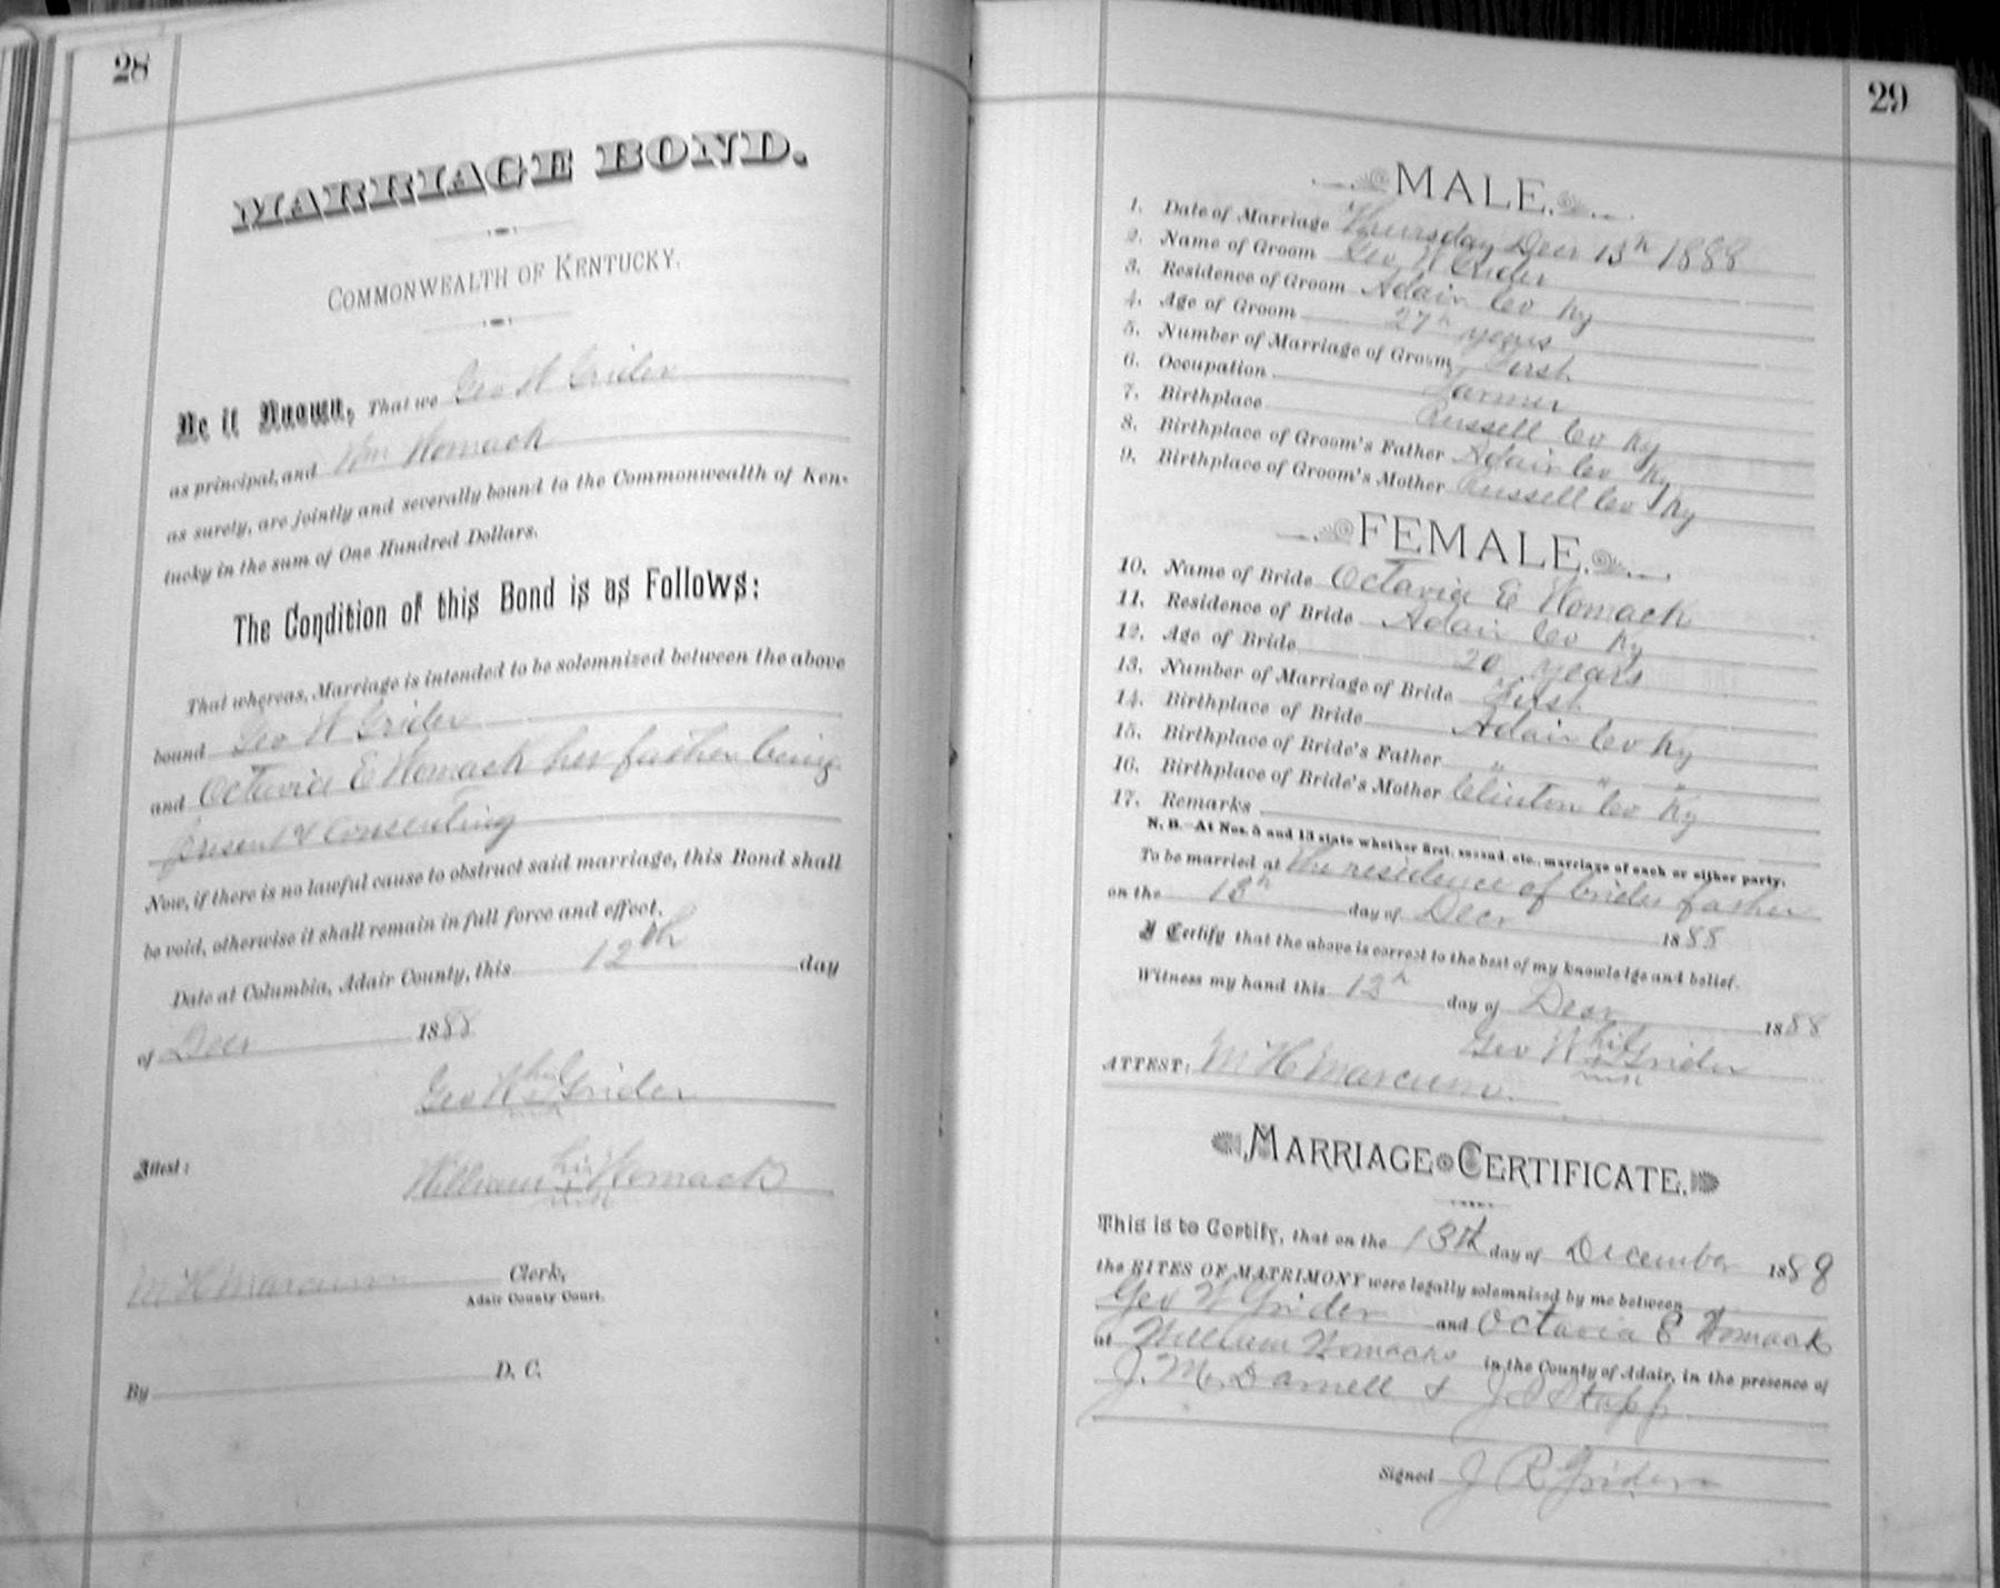 28
MARRIAGE BOND.
COMMONWEALTH OF KENTUCKY.
Be it Known, That we Geo W Grider
as principal, and Wm Womack
as surety, are jointly and severally bound to the Commonwealth of Ken-
tucky in the sum of One Hundred Dollars.
The Condition of this Bond is as Follows:
That whereas, Marriage is intended to be solemnized between the above
bound Geo W Grider
and Octavia E Womack her father being
present & consenting
Now, if there is no lawful cause to obstruct said marriage, this Bond shall
be void, otherwise it shall remain in full force and effect.
Date at Columbia, Adair County, this 12th day
of Decr 1888
Geo W his Grider
Attest: William his Womack
M H Marcum Clerk,
Adair County Court.
By D. C.
29
MALE.
1. Date of Marriage Thursday Decr 13th 1888
2. Name of Groom Geo W Grider
3. Residence of Groom Adair Co Ky
4. Age of Groom 27 years
5. Number of Marriage of Groom First
6. Occupation Farmer
7. Birthplace Russell Co Ky
8. Birthplace of Groom's Father Adair Co Ky
9. Birthplace of Groom's Mother Russell Co Ky
FEMALE.
10. Name of Bride Octavia E Womack
11. Residence of Bride Adair Co Ky
12. Age of Bride 20 years
13. Number of Marriage of Bride First
14. Birthplace of Bride Adair Co Ky
15. Birthplace of Bride's Father " " "
16. Birthplace of Bride's Mother Clinton Co Ky
17. Remarks
N. B.—At Nos. 5 and 13 state whether first, second, etc., marriage of each or either party.
To be married at the residence of brides father
on the 13th day of Decr 1888
I Certify that the above is correct to the best of my knowledge and belief.
Witness my hand this 12th day of Decr 1888
Geo W his Grider
ATTEST: M H Marcum
MARRIAGE CERTIFICATE.
This is to Certify, that on the 13th day of December 1888
the RITES OF MATRIMONY were legally solemnized by me between
Geo W Grider and Octavia E Womack
at William Womacks in the County of Adair, in the presence of
J. M. Darnell & J S Stapp
Signed J R Grider